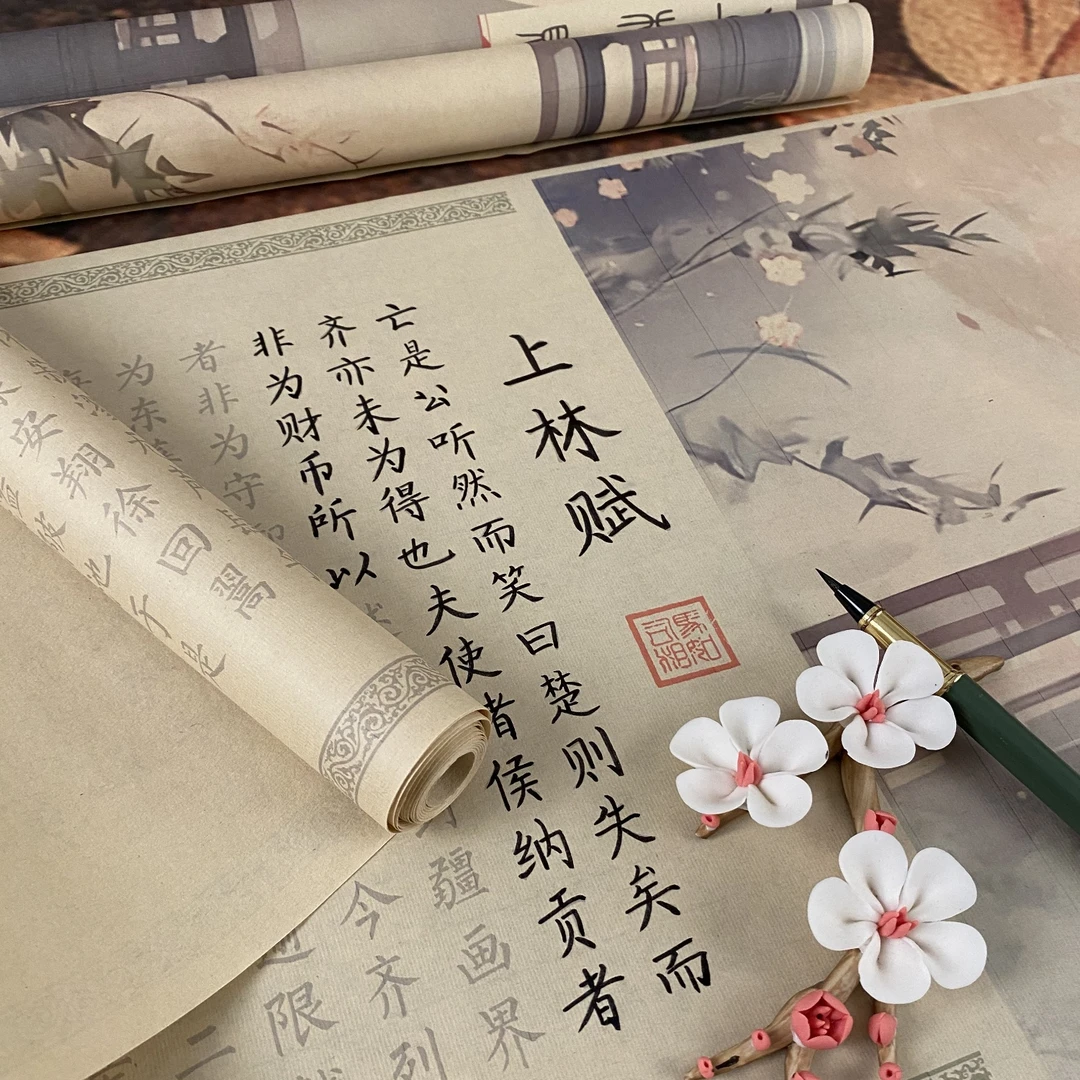 上林赋
司馬相如
亡是公听然而笑曰楚则失矣而
齐亦未为得也夫使者侯纳贡者
非为财币所以
疆画界
者非为守
今齐列
为东
限
二
安翔徐回翯